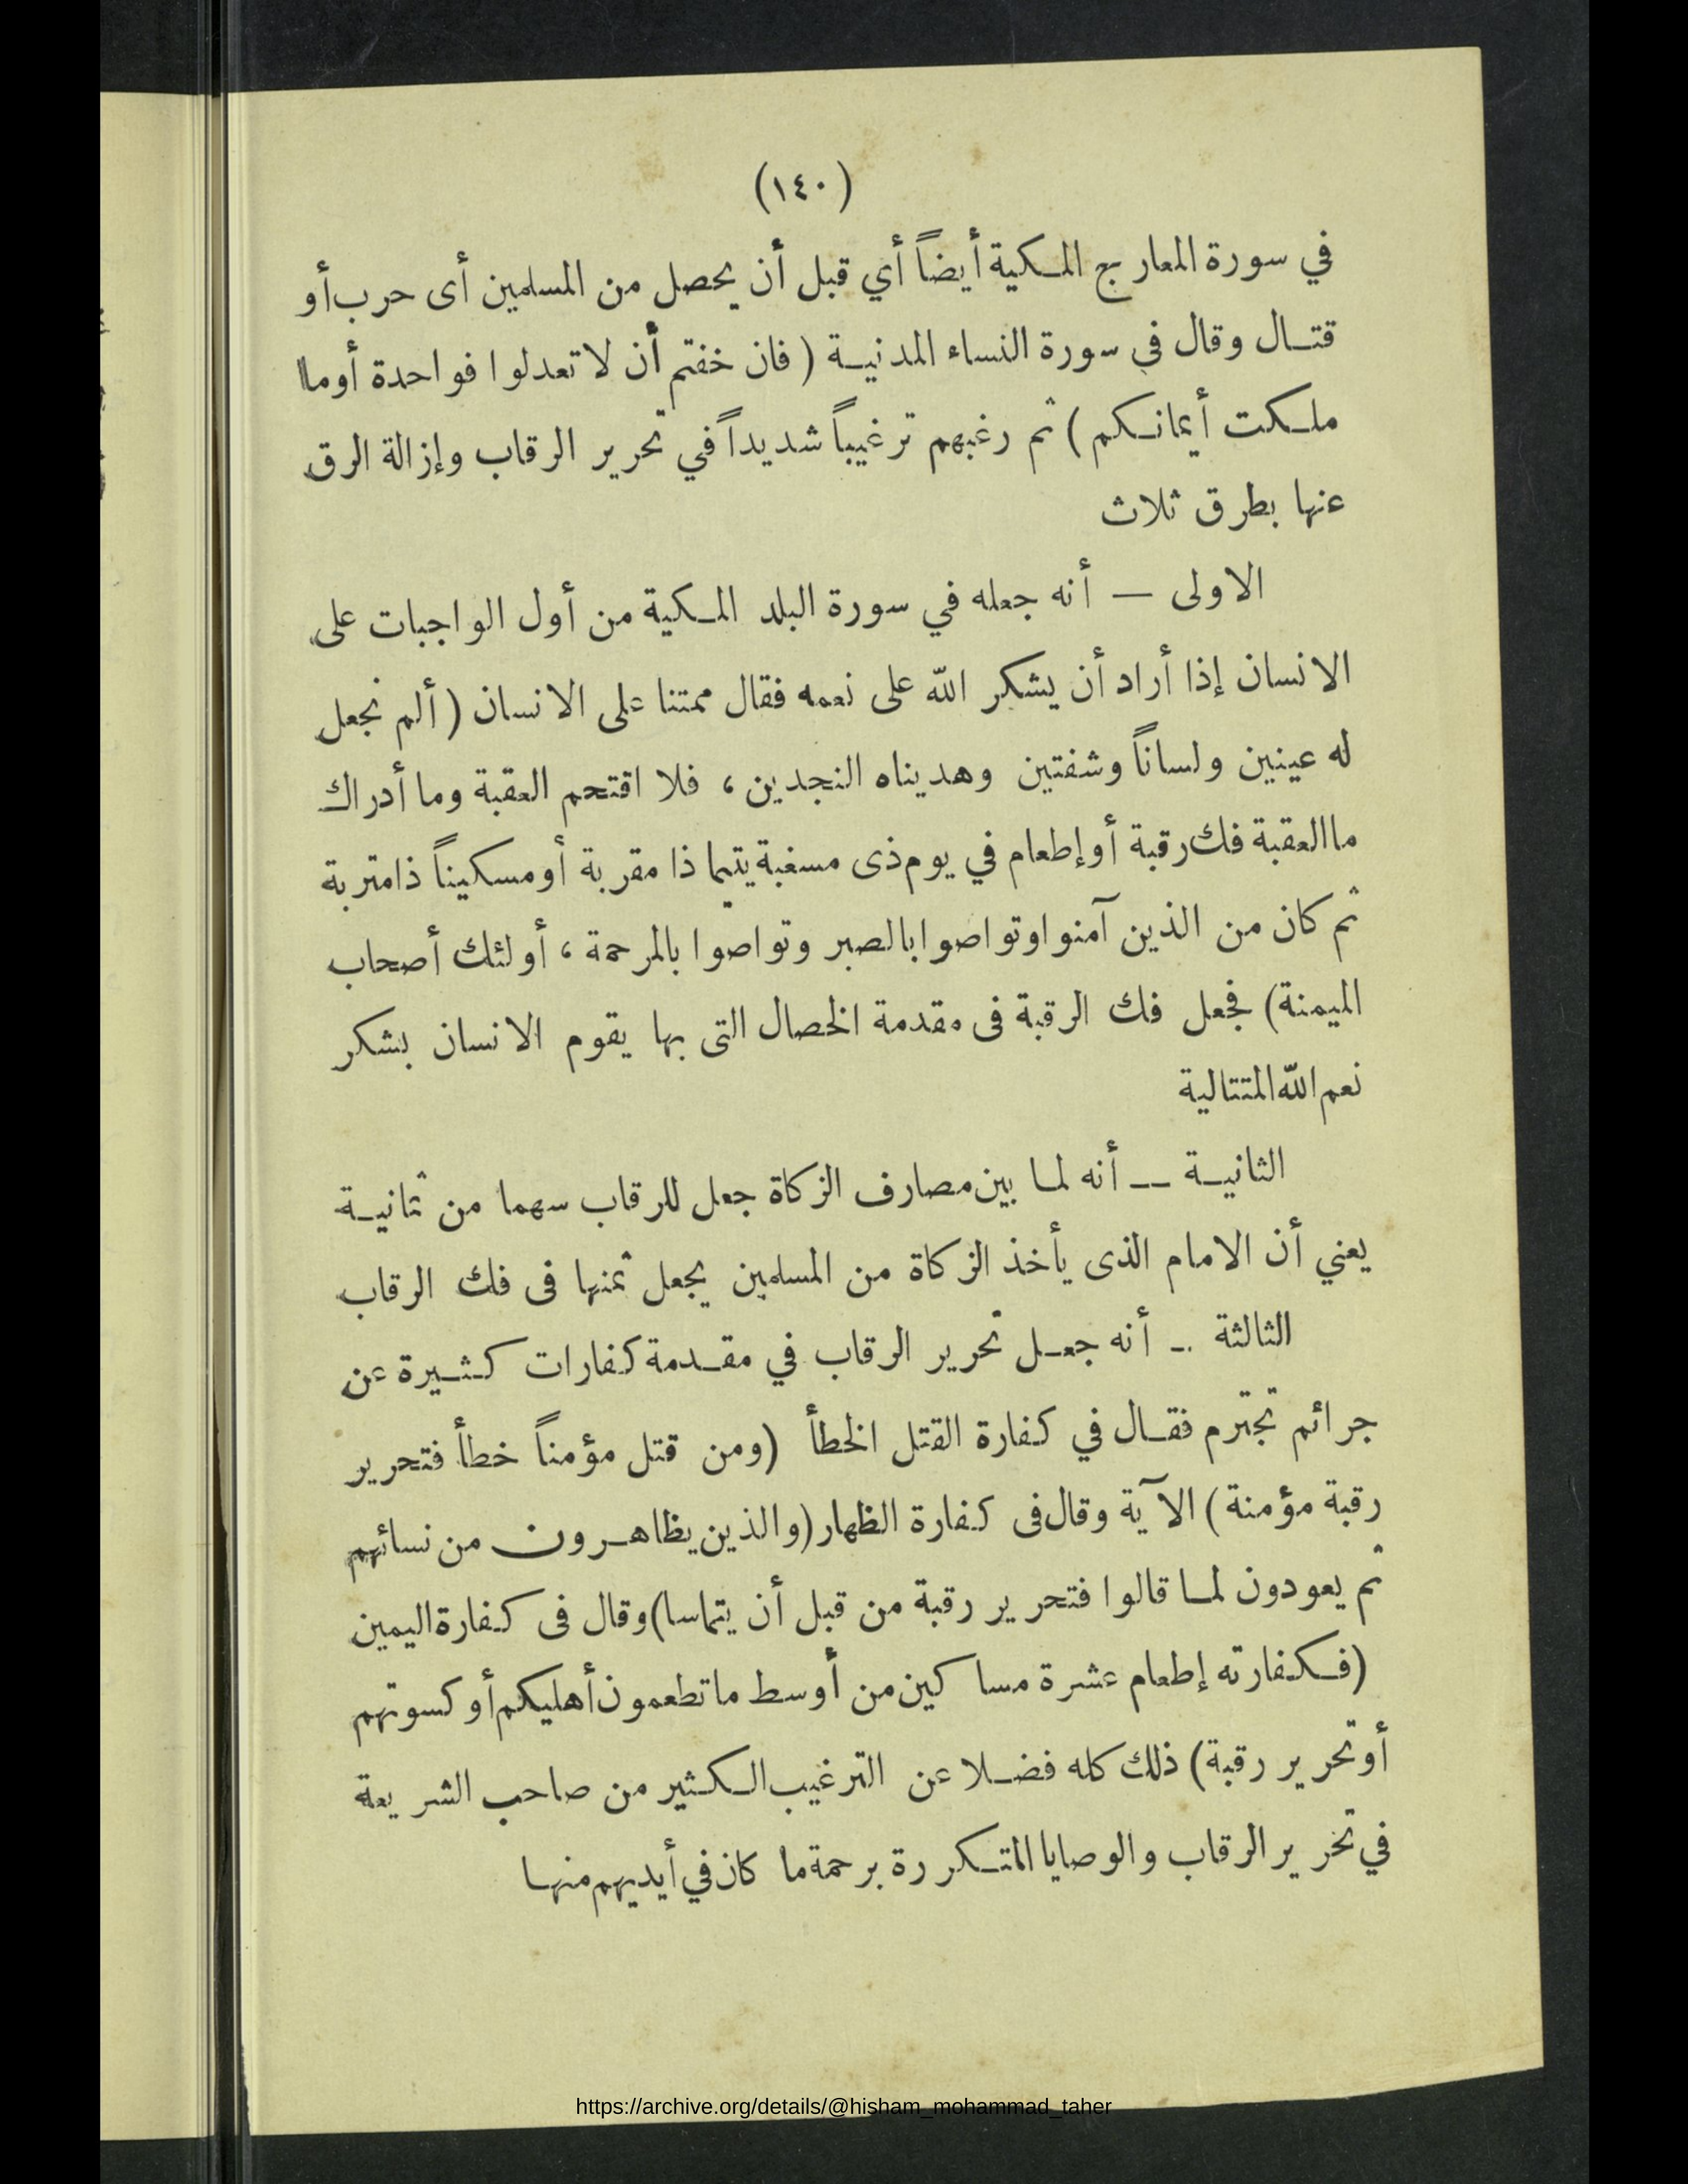 (١٤٠)
في سورة المعارج المكية أيضاً أي قبل أن يحصل من المسلمين أى حرب أو
قتال وقال في سورة النساء المدنية ( فان خفتم أن لا تعدلوا فواحدة أوما
ملكت أيمانكم ) ثم رغبهم ترغيباً شديداً في تحرير الرقاب وإزالة الرق
عنها بطرق ثلاث
الاولى — أنه جعله في سورة البلد المكية من أول الواجبات على
الانسان إذا أراد أن يشكر الله على نعمه فقال ممتنا على الانسان ( ألم نجعل
له عينين ولساناً وشفتين وهديناه النجدين ، فلا اقتحم العقبة وما أدراك
ما العقبة فك رقبة أو إطعام في يوم ذى مسغبة يتيما ذا مقربة أو مسكيناً ذا متربة
ثم كان من الذين آمنوا وتواصوا بالصبر وتواصوا بالمرحمة ، أولئك أصحاب
الميمنة) فجعل فك الرقبة فى مقدمة الخصال التى بها يقوم الانسان بشكر
نعم الله المتتالية
الثانية — أنه لما بين مصارف الزكاة جعل للرقاب سهما من ثمانية
يعني أن الامام الذى يأخذ الزكاة من المسلمين يجعل ثمنها فى فك الرقاب
الثالثة — أنه جعل تحرير الرقاب في مقدمة كفارات كثيرة عن
جرائم تجترم فقال في كفارة القتل الخطأ (ومن قتل مؤمناً خطأ فتحرير
رقبة مؤمنة) الآية وقال فى كفارة الظهار (والذين يظاهرون من نسائهم
ثم يعودون لما قالوا فتحرير رقبة من قبل أن يتماسا) وقال فى كفارة اليمين
(فكفارته إطعام عشرة مساكين من أوسط ما تطعمون أهليكم أو كسوتهم
أو تحرير رقبة) ذلك كله فضلا عن الترغيب الكثير من صاحب الشريعة
في تحرير الرقاب والوصايا المتكررة برحمة ما كان في أيديهم منها
https://archive.org/details/@hisham_mohammad_taher